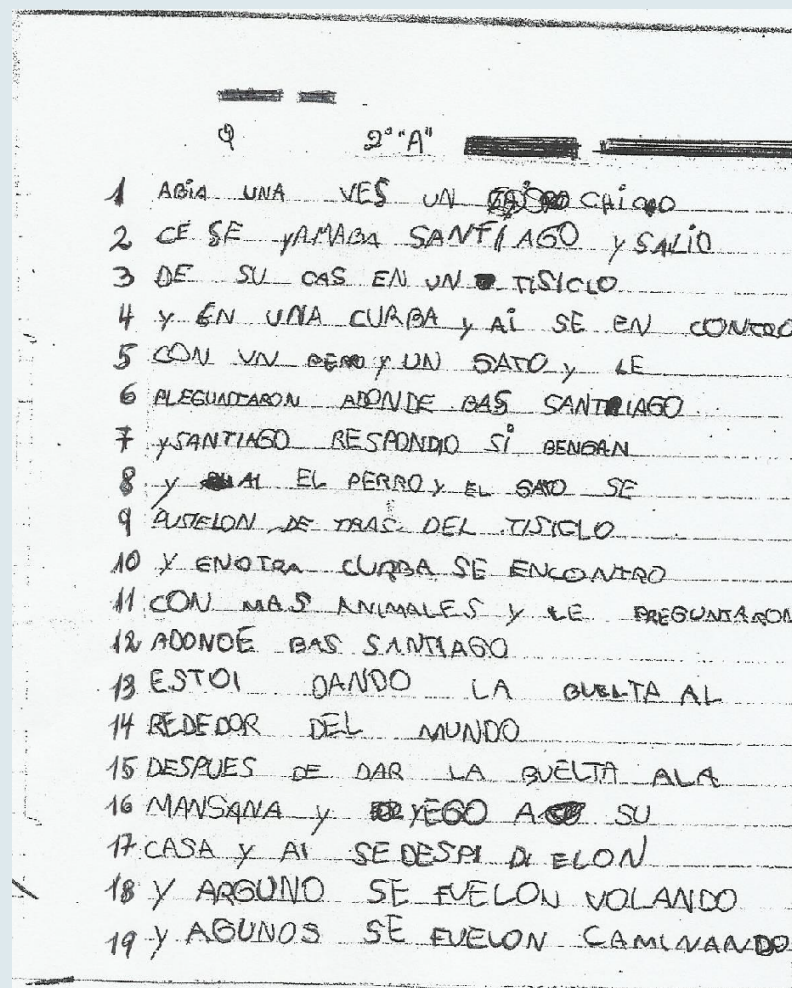 ♀ 2° "A"
1 ABIA UNA VES UN CHICO
2 CE SE YAMABA SANTIAGO Y SALIO
3 DE SU CAS EN UN TISICLO
4 Y EN UNA CURBA Y AI SE EN CONTRO
5 CON UN PERRO Y UN GATO Y LE
6 PLEGUNTARON ADONDE BAS SANTRIAGO
7 Y SANTIAGO RESPONDIO SI BENGAN
8 Y AI EL PERRO Y EL GATO SE
9 PUSIELON DE TRAS DEL TISICLO
10 Y EN OTRA CURBA SE ENCONTRO
11 CON MAS ANIMALES Y LE PREGUNTARON
12 ADONDE BAS SANTIAGO
13 ESTOI DANDO LA BUELTA AL
14 REDEDOR DEL MUNDO
15 DESPUES DE DAR LA BUELTA ALA
16 MANSANA Y YEGO A SU
17 CASA Y AI SE DESPI DI ELON
18 Y ARGUNO SE FUELON VOLANDO
19 Y AGUNOS SE FUELON CAMINANDO